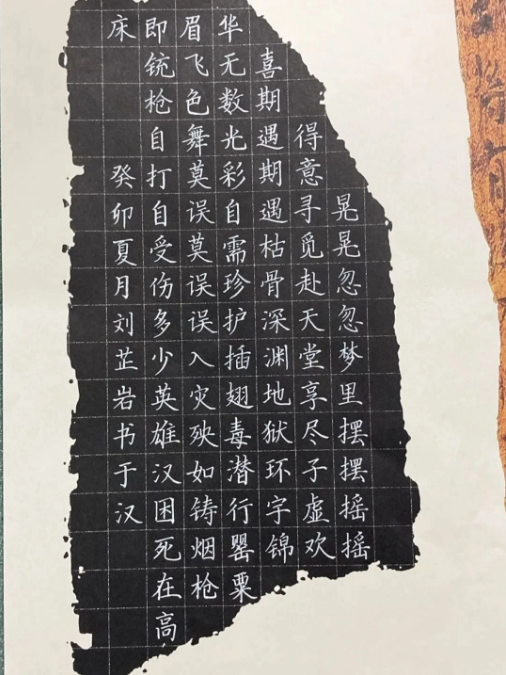 晃晃忽忽梦里摆摆摇摇
得意寻觅赴天堂享尽子虚欢
喜期遇期遇枯骨深渊地狱环宇锦
华无数光彩自需珍护插翅毒潜行罂粟
眉飞色舞莫误莫误误入灾殃如铸烟枪
即铳枪自打自受伤多少英雄汉困死在高
床 癸卯夏月刘芷岩书于汉